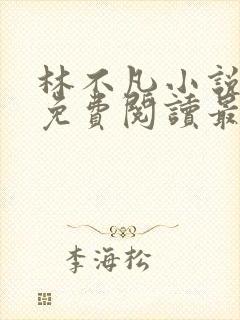 林不凡小説
免費閱讀最
李海松